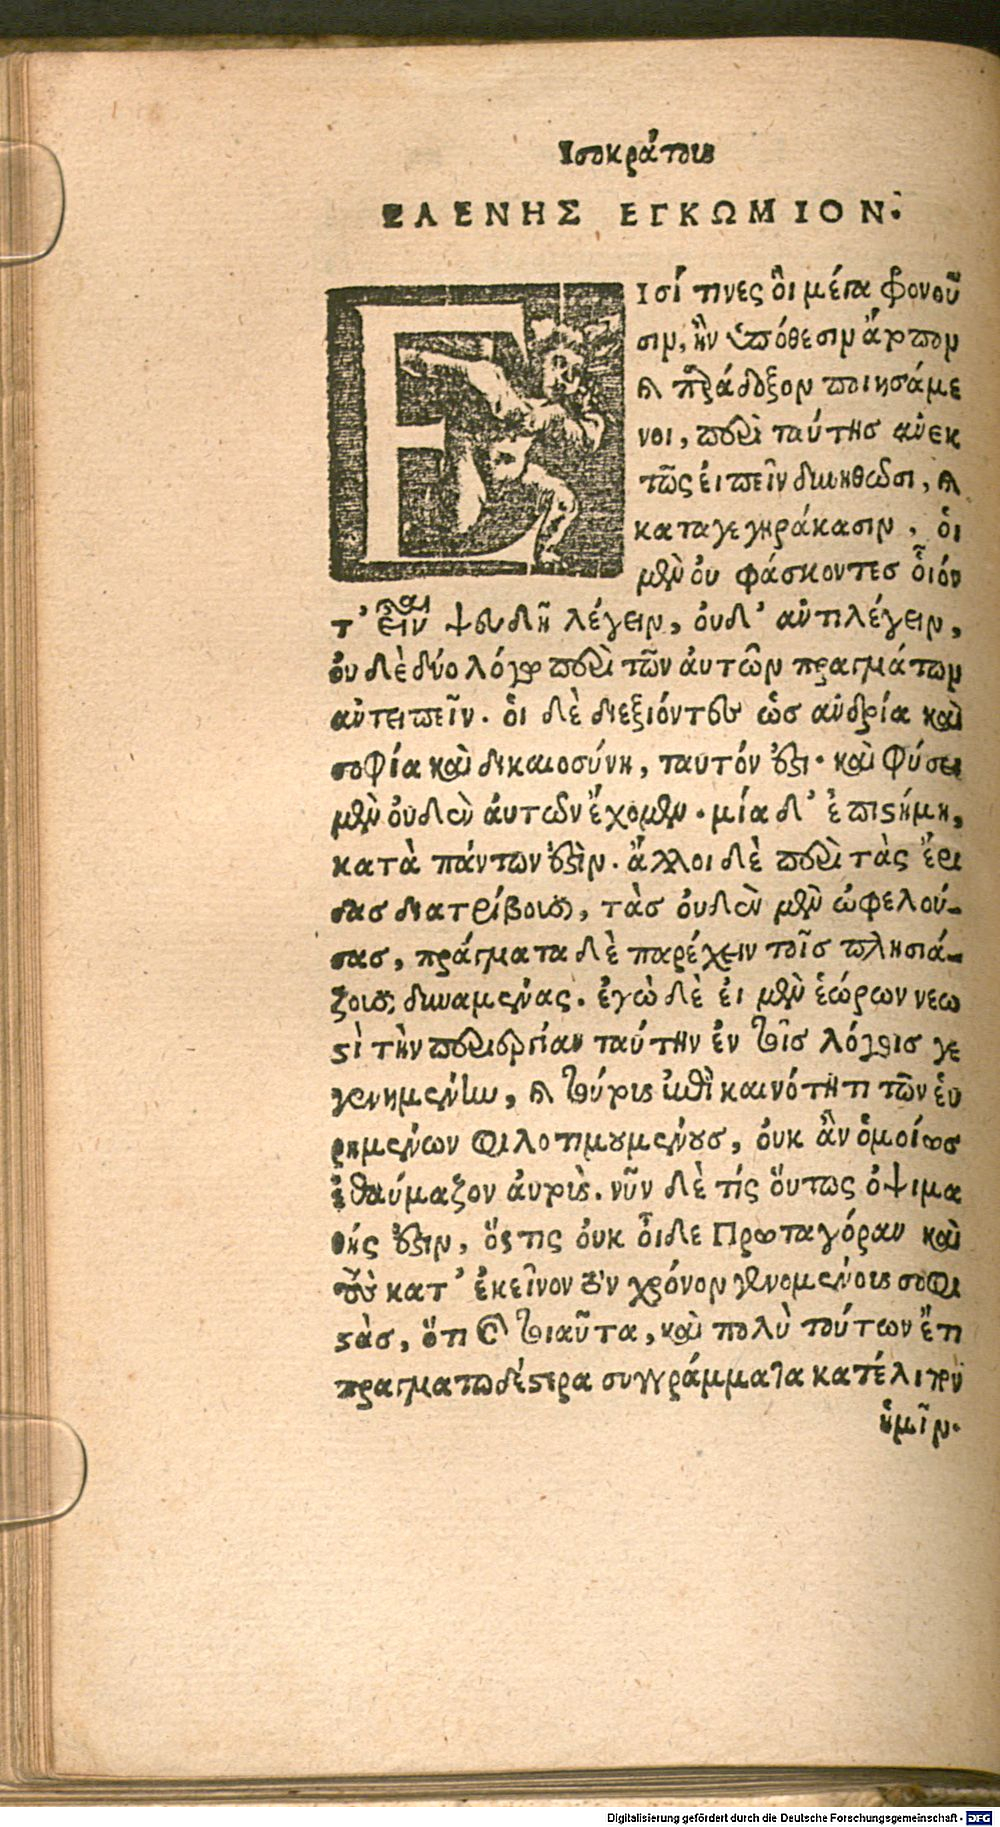 Ισοκράτους
ΕΛΕΝΗΣ ΕΓΚΩΜΙΟΝ.
Εἰσί τινες ὃι μέγα φρονοῦ
σιν, ἢν ὑπόθεσιν ἄτοπον
καὶ παράδοξον ποιησάμε
νοι, περὶ ταύτης ἀνεκ
τῶς ἐιπεῖν δυνηθῶσι, καὶ
καταγεγηράκασιν, ὁι
μὲν ὀυ φάσκοντες ὁἶόν
τ' εἶναι ψευδῆ λέγειν, ὀυδ' ἀντιλέγειν,
ὀυδὲ δύο λόγω περὶ τῶν ἀυτῶν πραγμάτων
ἀντειπεῖν. ὁι δὲ διεξιόντες ὡς ἀνδρία καὶ
σοφία καὶ δικαιοσύνη, ταυτόν ἐστι. καὶ φύσει
μὲν ὀυδὲν ἀυτῶν ἔχομεν. μία δ' ἐπιστήμη,
κατὰ πάντων ἐστὶν. ἄλλοι δὲ περὶ τὰς ἔρι
δας διατρίβουσι, τὰς ὀυδὲν μὲν ὠφελού-
σας, πράγματα δὲ παρέχειν τοῖς πλησιά-
ζουσι δυναμένας. ἐγὼ δὲ ἐι μὲν ἑώρων νεω
στὶ τὴν περιεργίαν ταύτην ἐν τοῖς λόγοις γε
γενημένην, καὶ τούτους ἐπὶ καινότητι τῶν ἑυ
ρημένων φιλοτιμουμένους, ὀυκ ἂν ὁμοίως
ἐθαύμαζον ἀυτοὺς. νῦν δὲ τίς ὅυτως ὀψιμα
θής ἐστιν, ὅστις ὀυκ ὁἶδε Πρωταγόραν καὶ
τοὺς κατ' ἐκεῖνον τὸν χρόνον γενομένους σοφι
στὰς, ὅτι καὶ τοιαῦτα, καὶ πολὺ τούτων ἔτι
πραγματωδέστερα συγγράμματα κατέλιπον
ἡμῖν.
Digitalisierung gefördert durch die Deutsche Forschungsgemeinschaft - DFG